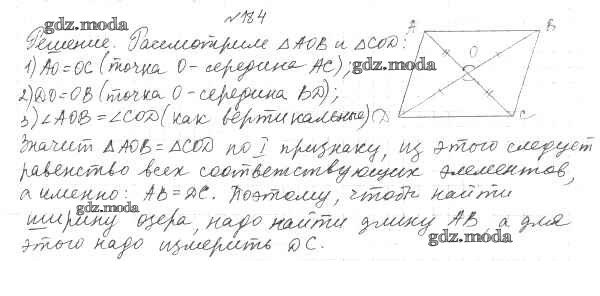 №184
gdz.moda
Решение. Рассмотрим △AOB и △COD:
1) AO=OC (точка O-середина AC);
gdz.moda
2) DO=OB (точка O-середина BD);
3) ∠AOB=∠COD (как вертикальные)
A B O D C
Значит △AOB=△COD по I признаку, из этого следует
gdz.moda
равенство всех соответствующих элементов,
а именно: AB=DC. Поэтому, чтобы найти
gdz.moda
ширину озера, надо найти длину AB, а для
этого надо измерить DC.
gdz.moda